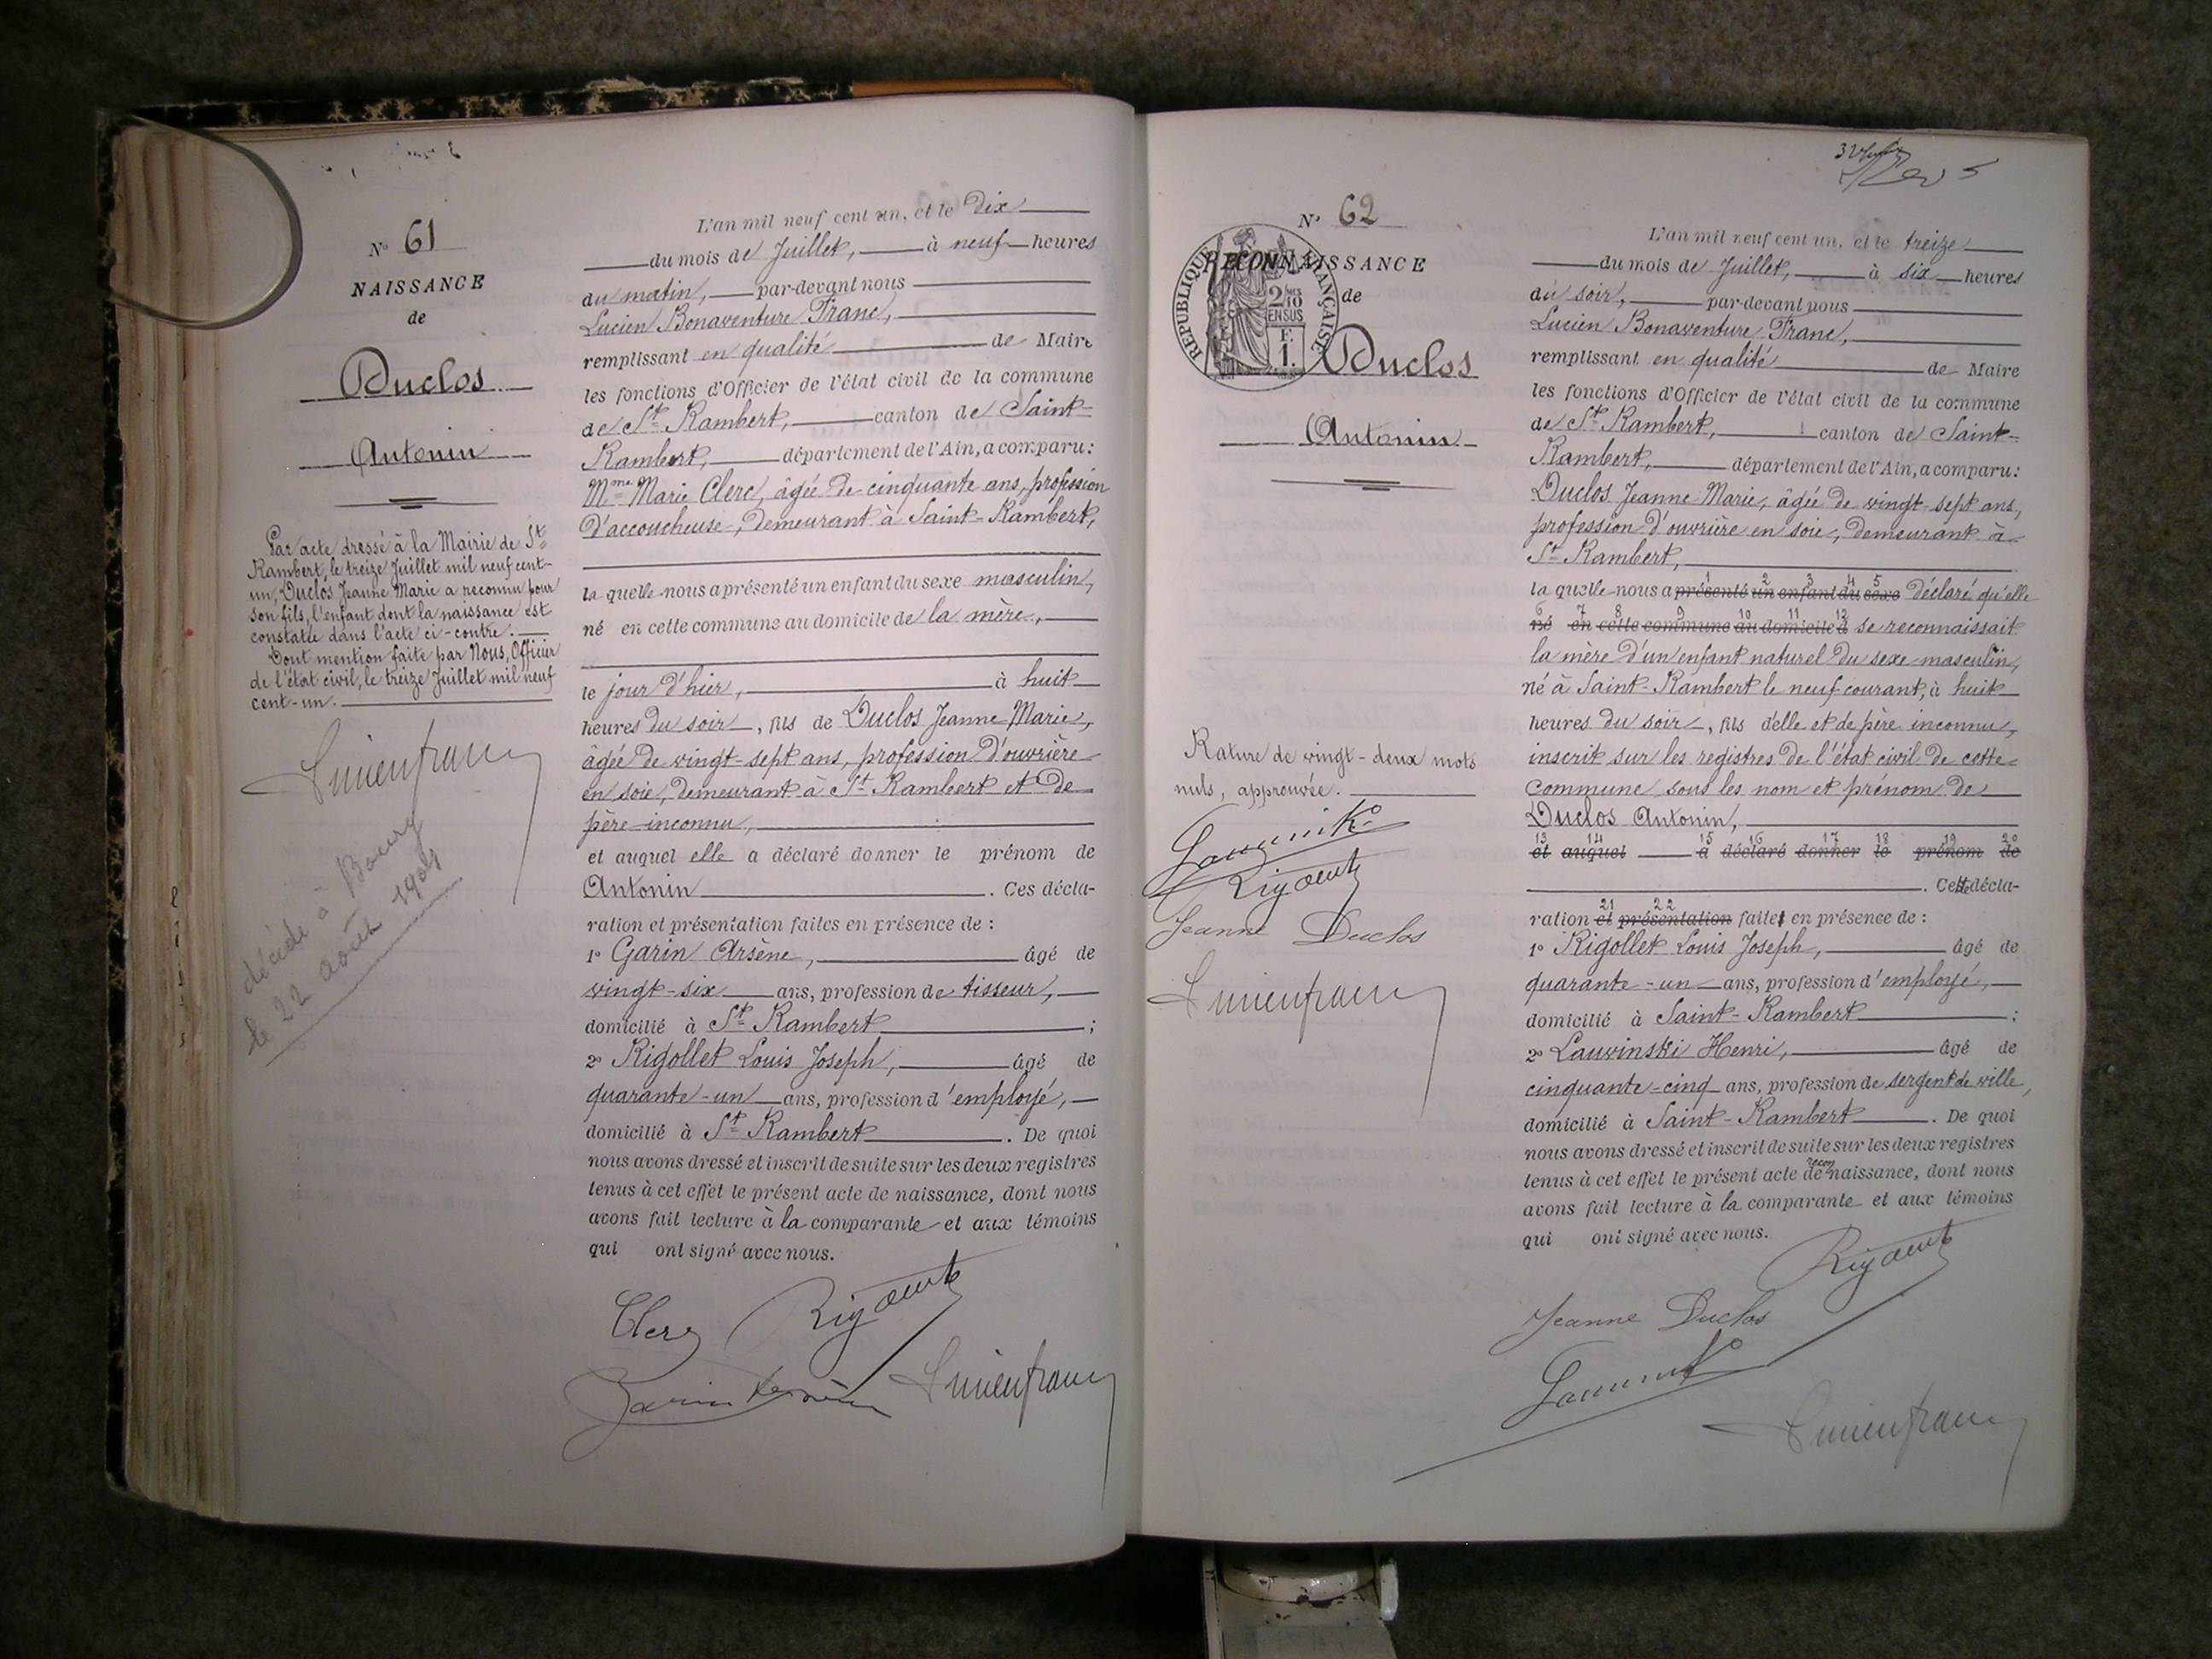 N° 61
NAISSANCE
de
Duclos
Antonin
Par acte dressé à la Mairie de St
Rambert, le treize Juillet mil neuf cent-
un, Duclos Jeanne Marie a reconnu pour
son fils, l'enfant dont la naissance est
constatée dans l'acte ci-contre.
Dont mention faite par Nous, Officier
de l'état civil, le treize Juillet mil neuf
cent-un.
Lucien franc
décédé à Bourg
le 22 août 1904
L'an mil neuf cent un, et le Dix
du mois de Juillet, à neuf heures
du matin, par-devant nous
Lucien Bonaventure Franc,
remplissant en qualité de Maire
les fonctions d'Officier de l'état civil de la commune
de St Rambert, canton de Saint-
Rambert, département de l'Ain, a comparu:
Mme Marie Clerc, âgée de cinquante ans, profession
d'accoucheuse, demeurant à Saint-Rambert,
la quelle nous a présenté un enfant du sexe masculin,
né en cette commune au domicile de la mère,
le jour d'hier, à huit
heures du soir, fils de Duclos Jeanne Marie,
âgée de vingt-sept ans, profession d'ouvrière
en soie, demeurant à St Rambert et de
père inconnu,
et auquel elle a déclaré donner le prénom de
Antonin. Ces décla-
ration et présentation faites en présence de :
1° Garin Arsène, âgé de
vingt-six ans, profession de tisseur,
domicilié à St Rambert ;
2° Rigollet Louis Joseph, âgé de
quarante-un ans, profession d'employé,
domicilié à St Rambert. De quoi
nous avons dressé et inscrit de suite sur les deux registres
tenus à cet effet le présent acte de naissance, dont nous
avons fait lecture à la comparante et aux témoins
qui ont signé avec nous.
Clerc
Garin Arsène Lucien franc
N° 62
RECONNAISSANCE
de
REPUBLIQUE FRANÇAISE
2/10 EN SUS
F. 1.
Duclos
Antonin
Rature de vingt-deux mots
nuls, approuvée.
Jeanne Duclos
Lucien franc
L'an mil neuf cent un, et le treize
du mois de Juillet, à six heures
du soir, par-devant nous
Lucien Bonaventure Franc,
remplissant en qualité de Maire
les fonctions d'Officier de l'état civil de la commune
de St Rambert, canton de Saint-
Rambert, département de l'Ain, a comparu:
Duclos Jeanne Marie, âgée de vingt-sept ans,
profession d'ouvrière en soie, demeurant à
St Rambert,
1 2 3 4 5
la quelle nous a présenté un enfant du sexe déclaré qu'elle
6 7 8 9 10 11 12
né en cette commune au domicile d se reconnaissait
la mère d'un enfant naturel du sexe masculin,
né à Saint-Rambert le neuf courant, à huit
heures du soir, fils d'elle et de père inconnu,
inscrit sur les registres de l'état civil de cette
Commune sous les nom et prénom de
Duclos Antonin,
13 14 15 16 17 18 19 20
et auquel a déclaré donner le prénom de
. Cette décla-
21 22
ration et présentation faite en présence de :
1° Rigollet Louis Joseph, âgé de
quarante-un ans, profession d'employé,
domicilié à Saint-Rambert ;
2° Lauwinski Henri, âgé de
cinquante-cinq ans, profession de sergent de ville,
domicilié à Saint-Rambert. De quoi
nous avons dressé et inscrit de suite sur les deux registres
tenus à cet effet le présent acte de reconnaissance, dont nous
avons fait lecture à la comparante et aux témoins
qui ont signé avec nous.
Jeanne Duclos
Lucien franc